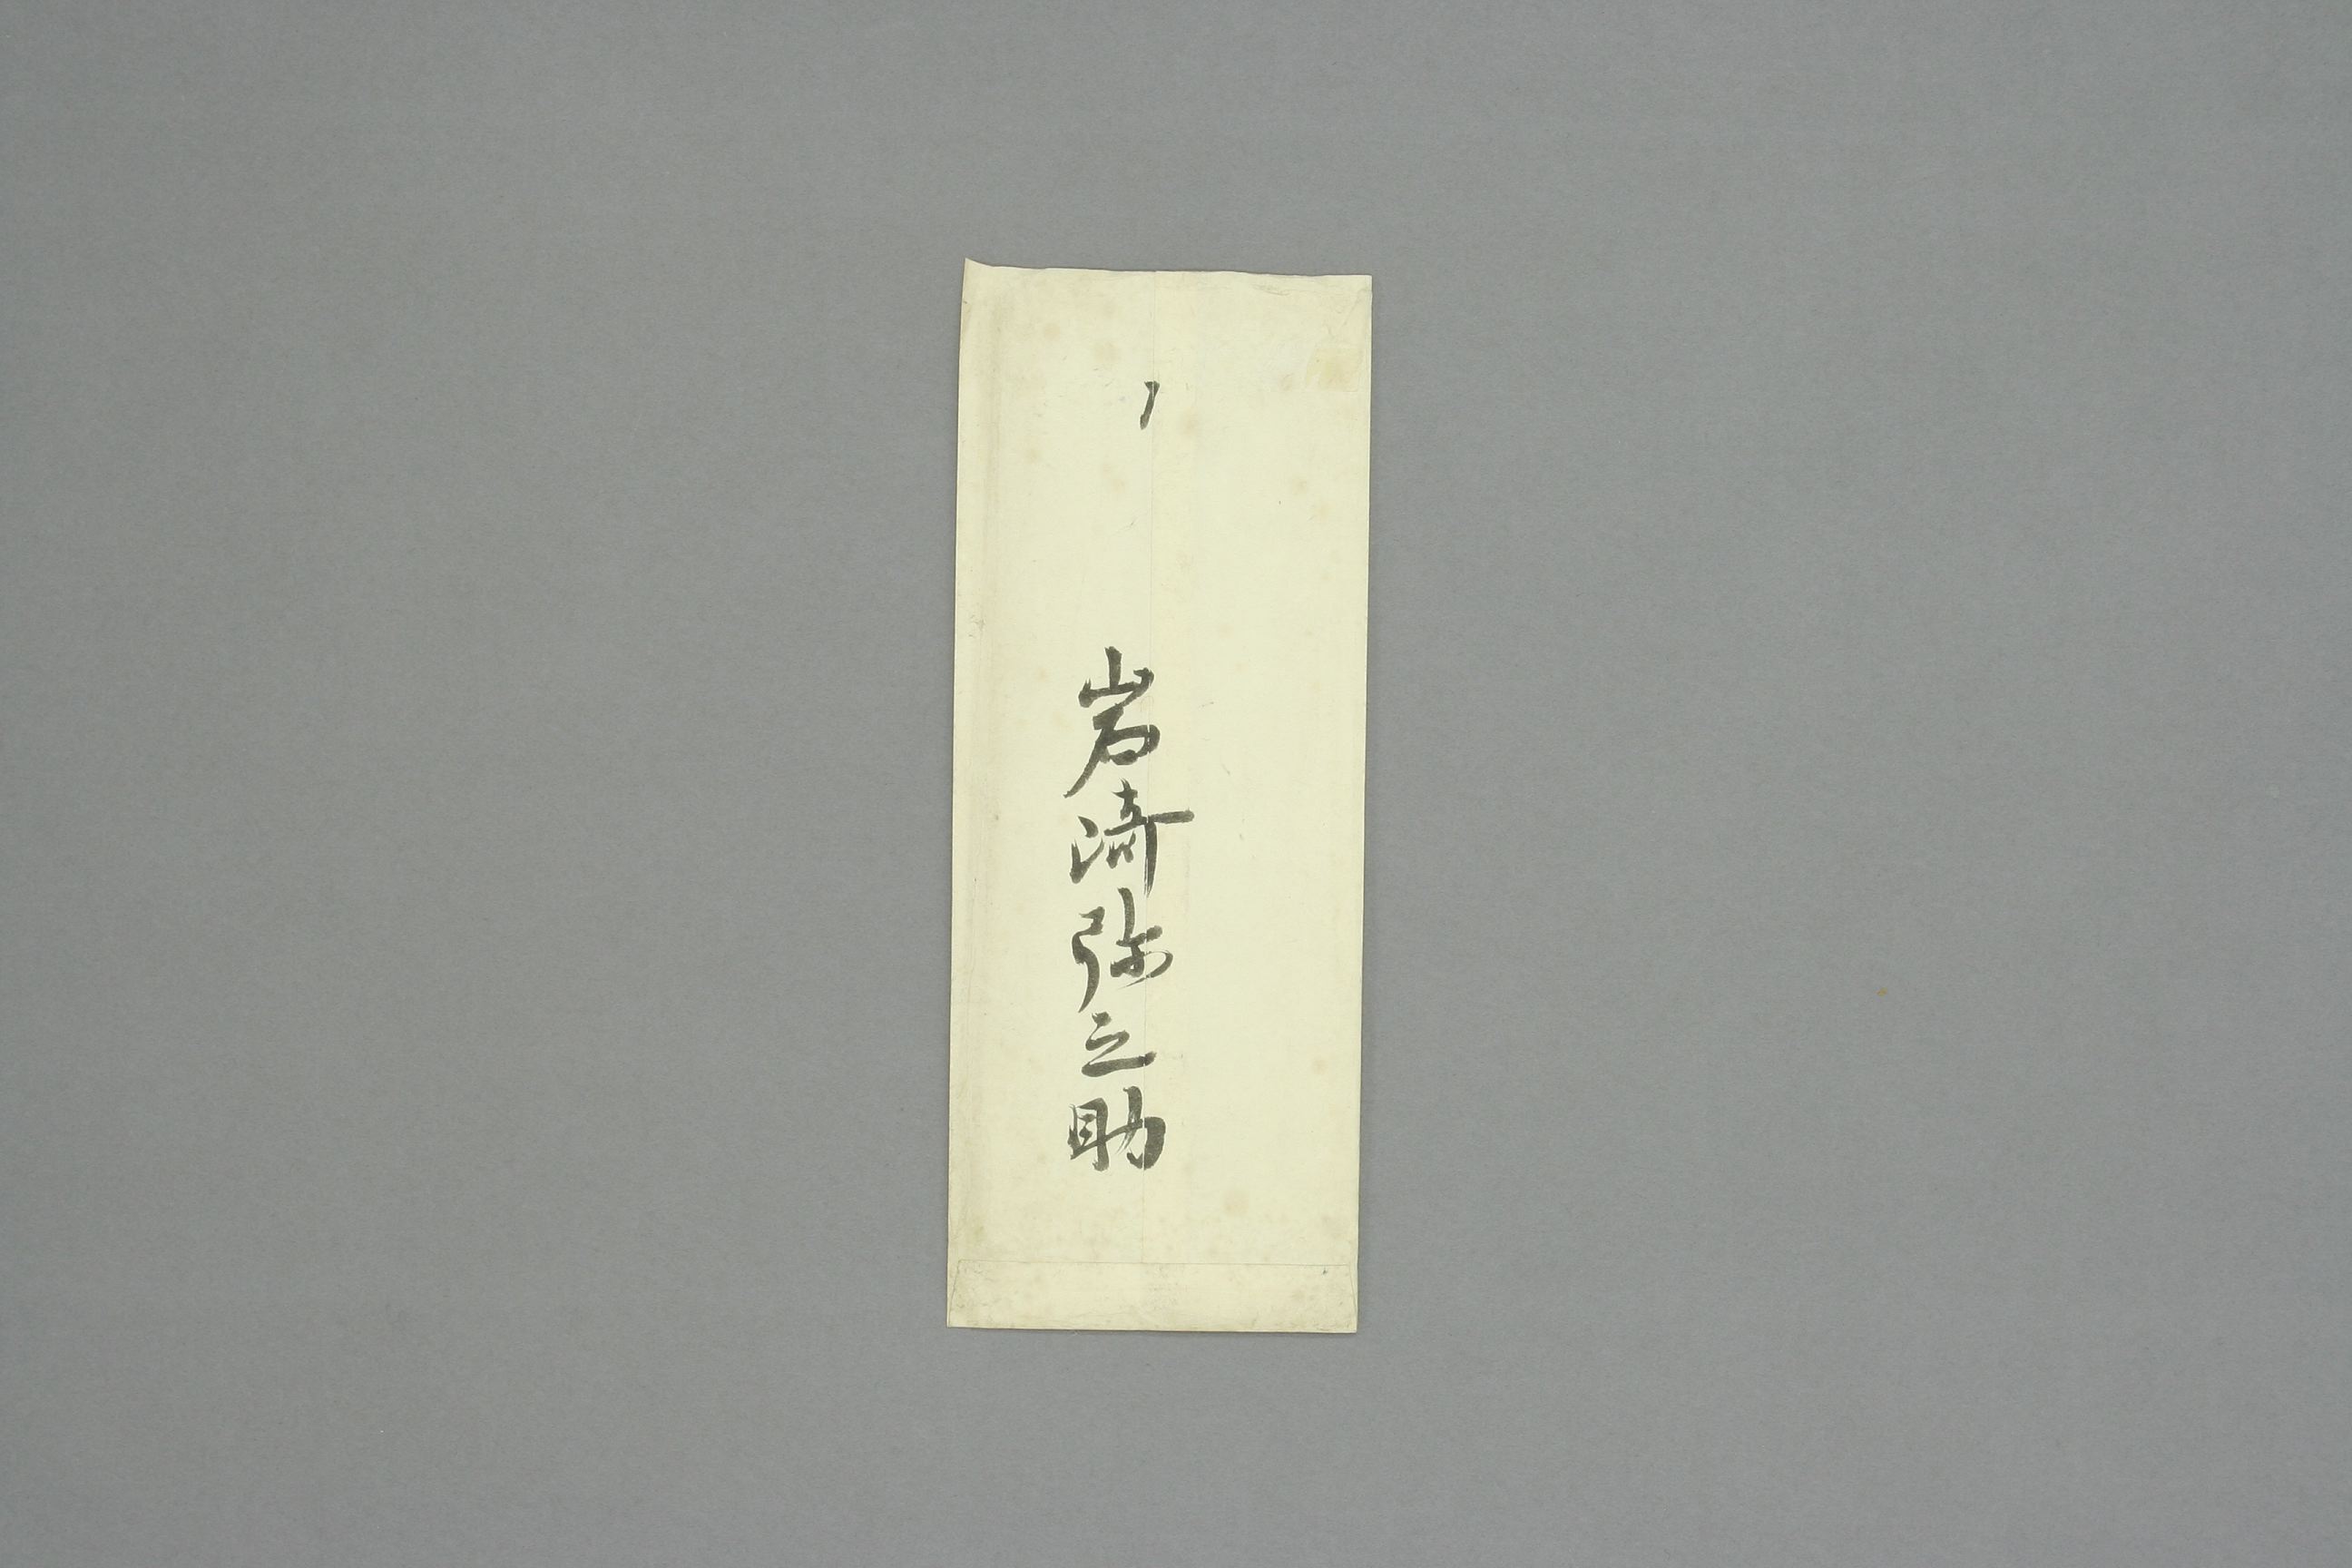 岩崎弥之助